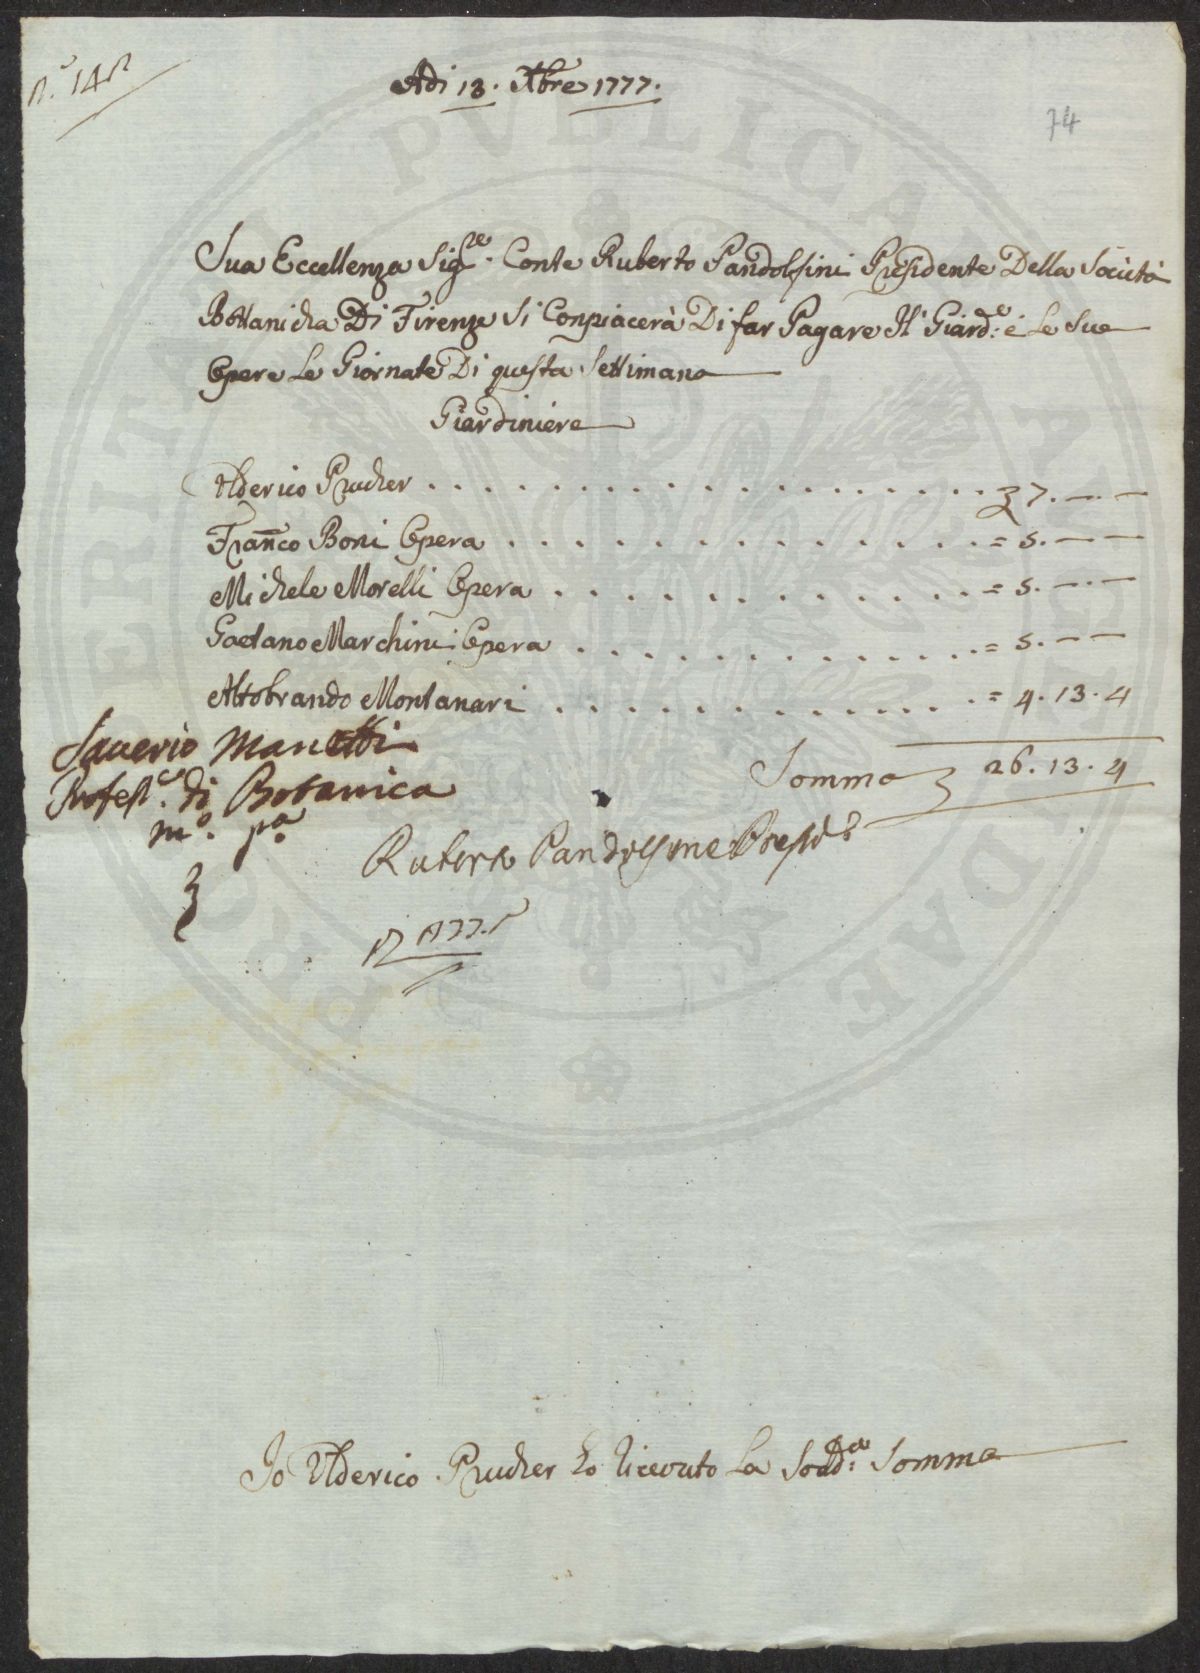 Adi 13. Xbre 1777.
74
Sua Eccellenza Sig.re Conte Ruberto Pandolfini Presidente Della Società
Bottanicha Di Firenze Si Conpiacerà Di far Pagare Il Giard.e é Le Sue
Opere Le Giornate Di questa Settimana
Giardiniere
Ulderico Prucher . . . . . . . . . . 7. — . —
Fran͠co Boni Opera . . . . . . . . . . = 5. — —
Michele Morelli Opera . . . . . . . . . . = 5. — . —
Gaetano Marchini Opera . . . . . . . . . . = 5. — —
Altobrando Montanari . . . . . . . . . . = 4. 13. 4
Somma 26. 13. 4
Saverio Manetti
Profess.e di Botanica
m.o p.a
Ruberto Pandolfini Presid.e
Io Ulderico Prucher ho ricevuto La Sodd.a Somma
PUBLICAE